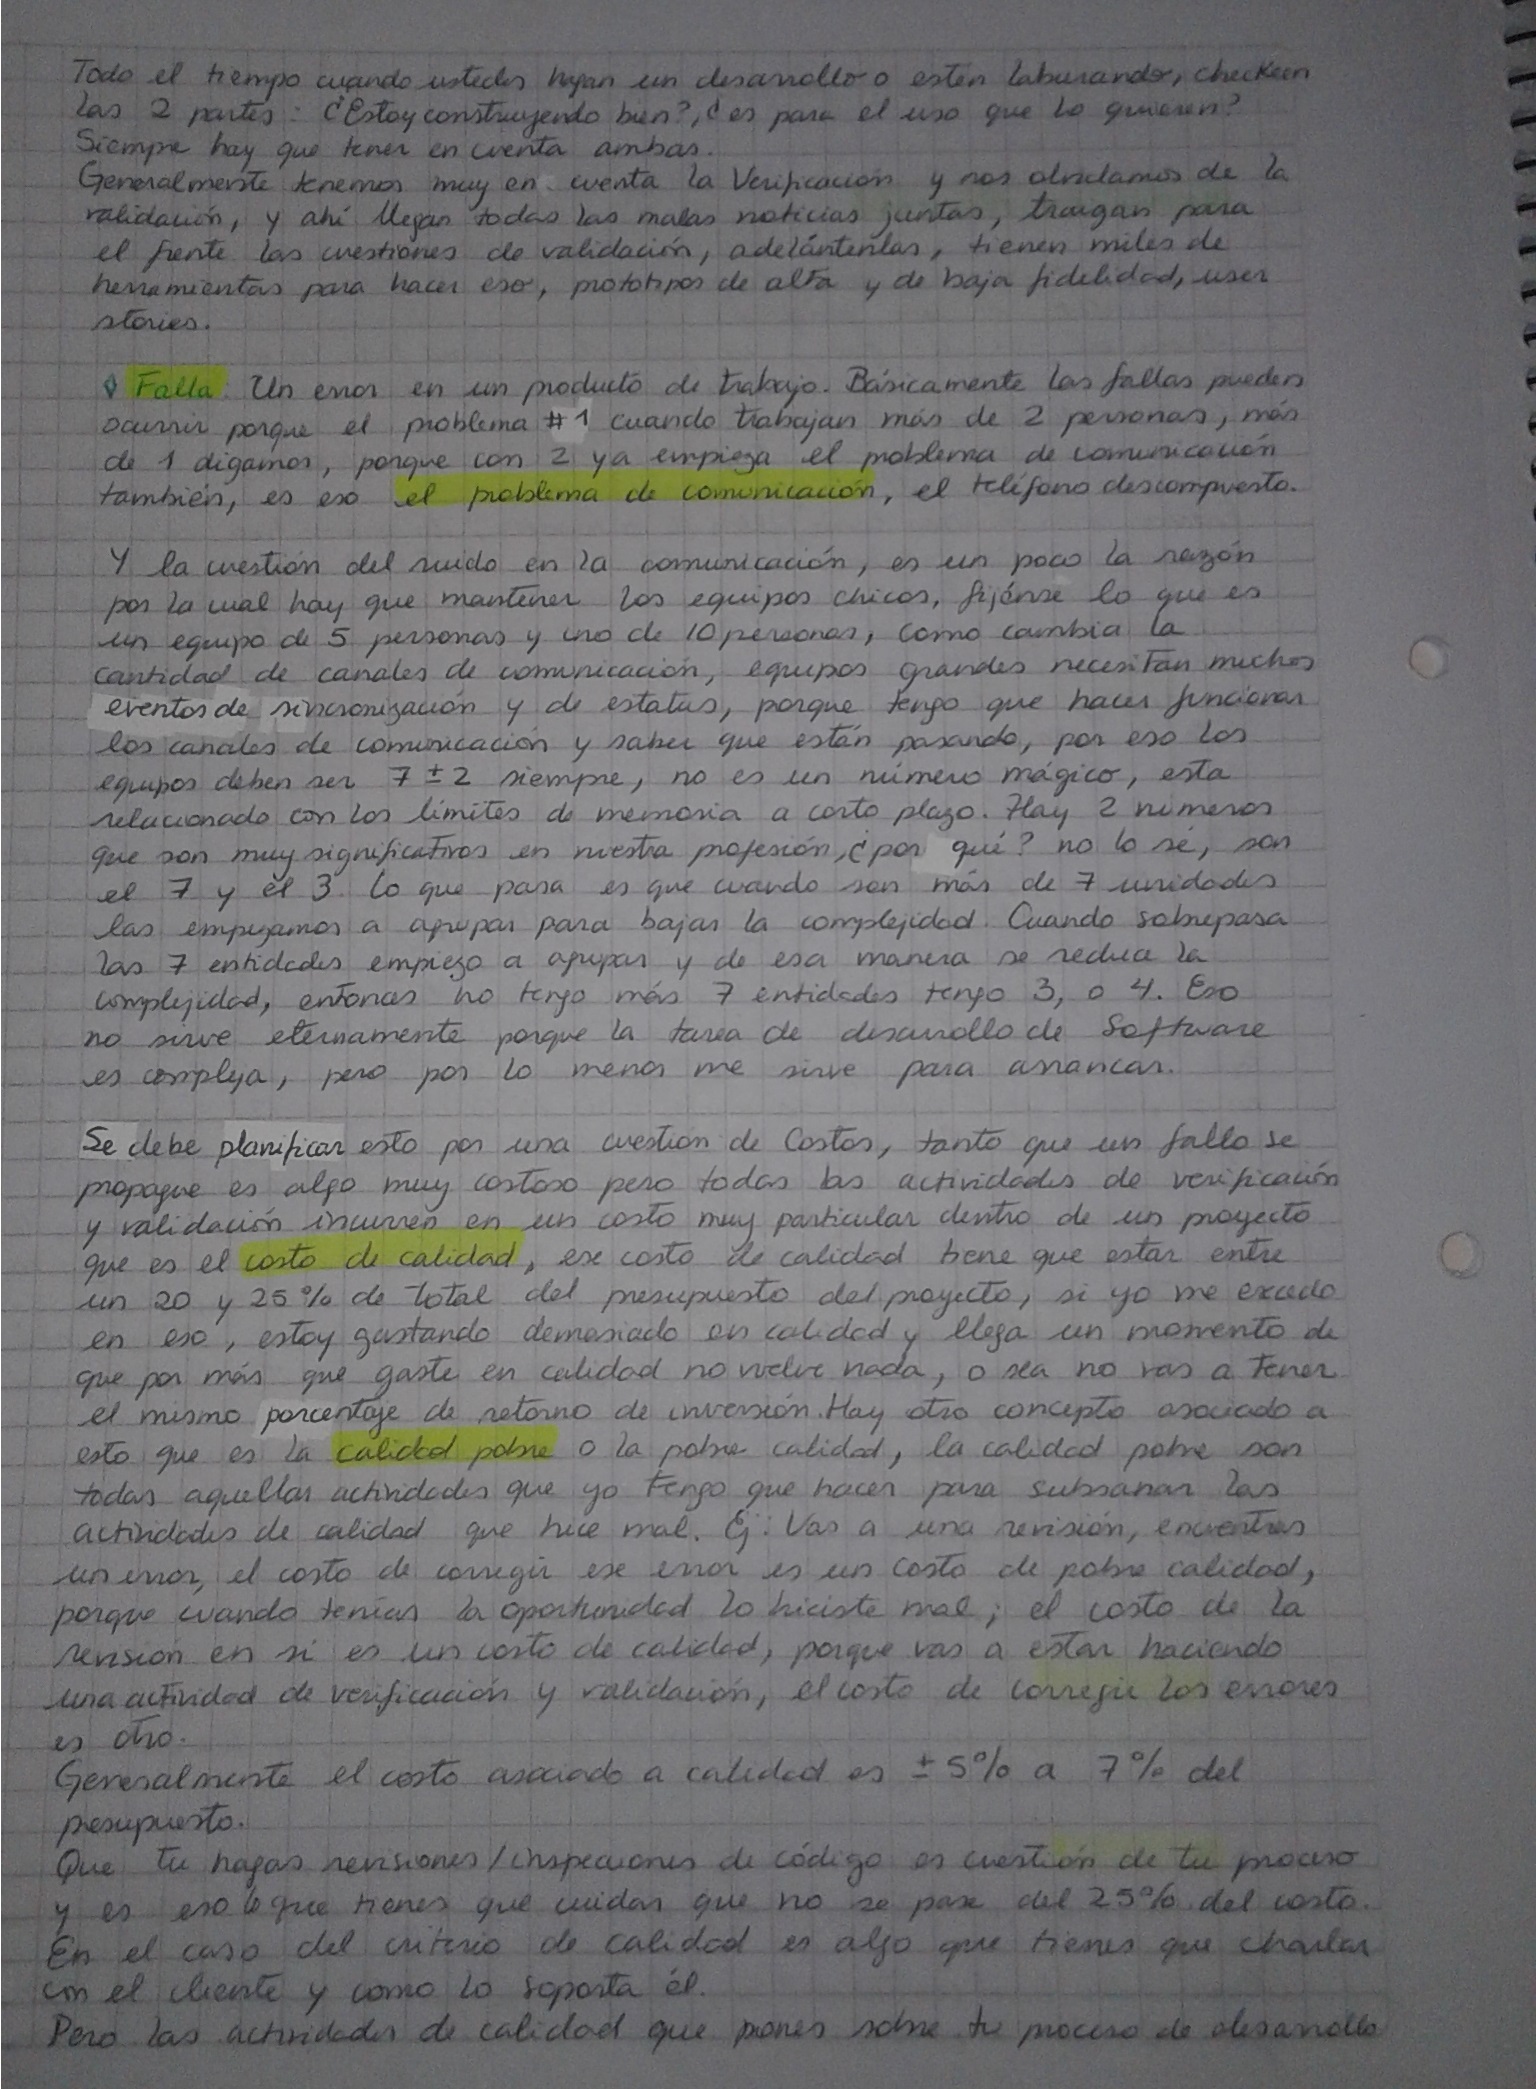 Todo el tiempo cuando ustedes hagan un desarrollo o esten laburando, checkeen
las 2 partes: ¿Estoy construyendo bien?, ¿es para el uso que lo quieren?
Siempre hay que tener en cuenta ambas.
Generalmente tenemos muy en cuenta la Verificación y nos olvidamos de la
validación, y ahí llegan todas las malas noticias juntas, traigan para
el frente las cuestiones de validación, adelántenlas, tienen miles de
herramientas para hacer eso, prototipos de alta y de baja fidelidad, user
stories.
Falla: Un error en un producto de trabajo. Básicamente las fallas pueden
ocurrir porque el problema #1 cuando trabajan más de 2 personas, más
de 1 digamos, porque con 2 ya empieza el problema de comunicación
también, es eso el problema de comunicación, el teléfono descompuesto.
Y la cuestión del ruido en la comunicación, es un poco la razón
por la cual hay que mantener los equipos chicos, fijénse lo que es
un equipo de 5 personas y uno de 10 personas, como cambia la
cantidad de canales de comunicación, equipos grandes necesitan muchos
eventos de sincronización y de estatus, porque tengo que hacer funcionar
los canales de comunicación y saber que están pasando, por eso los
equipos deben ser 7 ± 2 siempre, no es un número mágico, esta
relacionado con los límites de memoria a corto plazo. Hay 2 números
que son muy significativos en nuestra profesión, ¿por qué? no lo sé, son
el 7 y el 3. Lo que pasa es que cuando son más de 7 unidades
las empezamos a agrupar para bajar la complejidad. Cuando sobrepasa
las 7 entidades empiezo a agrupar y de esa manera se reduce la
complejidad, entonces no tengo más 7 entidades tengo 3, o 4. Eso
no sirve eternamente porque la tarea de desarrollo de Software
es compleja, pero por lo menos me sirve para arrancar.
Se debe planificar esto por una cuestión de Costos, tanto que un fallo se
propague es algo muy costoso pero todas las actividades de verificación
y validación incurren en un costo muy particular dentro de un proyecto
que es el costo de calidad, ese costo de calidad tiene que estar entre
un 20 y 25% de total del presupuesto del proyecto, si yo me excedo
en eso, estoy gastando demasiado en calidad y llega un momento de
que por más que gaste en calidad no vuelve nada, o sea no vas a tener
el mismo porcentaje de retorno de inversión. Hay otro concepto asociado a
esto que es la calidad pobre o la pobre calidad, la calidad pobre son
todas aquellas actividades que yo tengo que hacer para subsanar las
actividades de calidad que hice mal. Ej: Vas a una revisión, encuentras
un error, el costo de corregir ese error es un costo de pobre calidad,
porque cuando tenías la oportunidad lo hiciste mal; el costo de la
revisión en sí es un costo de calidad, porque vas a estar haciendo
una actividad de verificación y validación, el costo de corregir los errores
es otro.
Generalmente el costo asociado a calidad es ± 5% a 7% del
presupuesto.
Que tu hagas revisiones/inspecciones de código es cuestión de tu proceso
y es eso lo que tienes que cuidar que no se pase del 25% del costo.
En el caso del criterio de calidad es algo que tienes que charlar
con el cliente y como lo soporta él.
Pero las actividades de calidad que pones sobre tu proceso de desarrollo